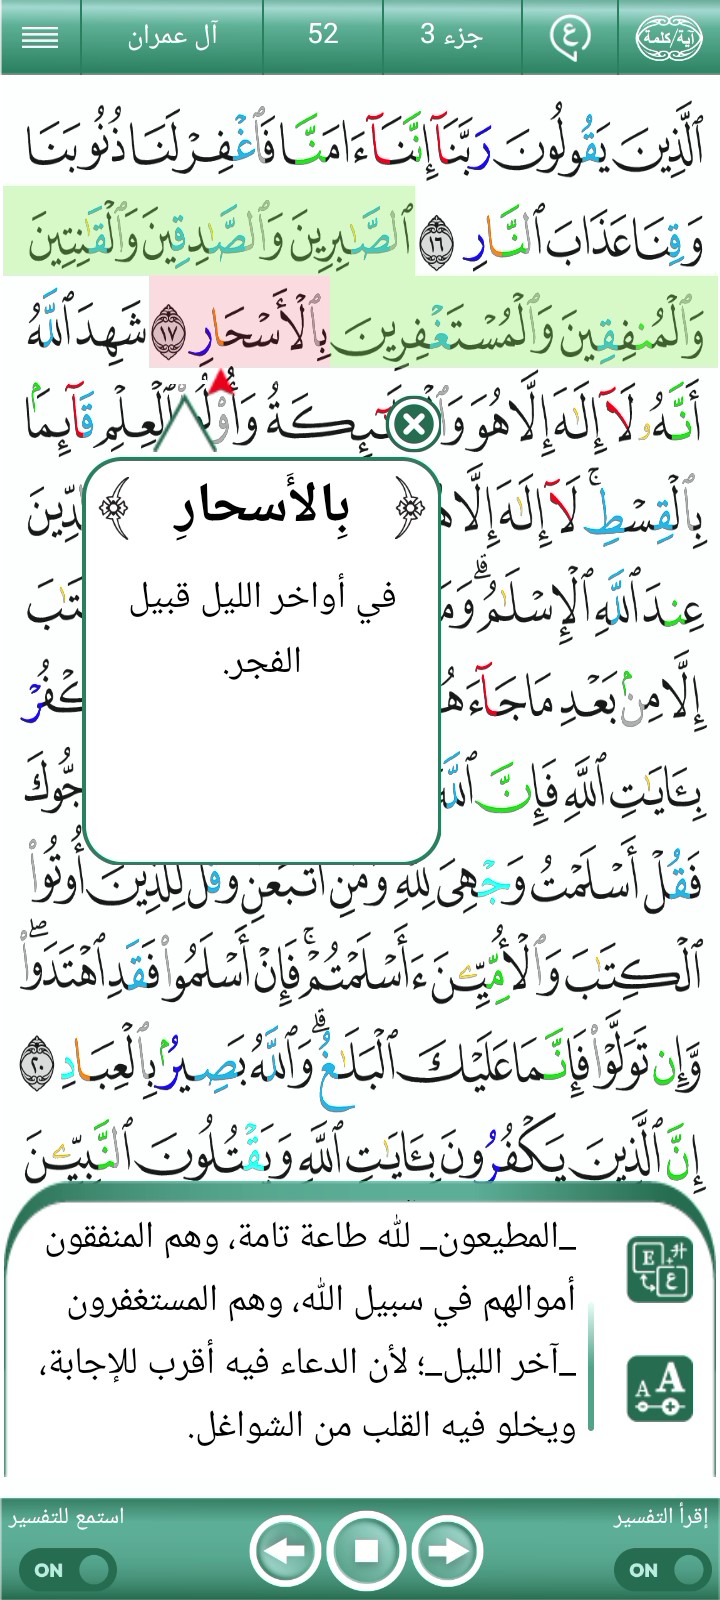 آية/كلمة
ع
جزء 3
52
آل عمران
ٱلَّذِينَ يَقُولُونَ رَبَّنَآ إِنَّنَآ ءَامَنَّا فَٱغْفِرْ لَنَا ذُنُوبَنَا
وَقِنَا عَذَابَ ٱلنَّارِ ١٦ ٱلصَّٰبِرِينَ وَٱلصَّٰدِقِينَ وَٱلْقَٰنِتِينَ
وَٱلْمُنفِقِينَ وَٱلْمُسْتَغْفِرِينَ بِٱلْأَسْحَارِ ١٧ شَهِدَ ٱللَّهُ
أَنَّهُۥ لَآ إِلَٰهَ إِلَّا هُوَ ٱلْعِلْمِ قَآئِمًۢا
بِٱلْقِسْطِ ۚ لَآ إِلَٰهَ إِلَّا
عِندَ ٱللَّهِ ٱلْإِسْلَٰمُ ۗ
إِلَّا مِنۢ بَعْدِ مَا جَآءَ
بِـَٔايَٰتِ ٱللَّهِ فَإِنَّ ٱللَّهَ
﴿بِالأَسحارِ﴾
في أواخر الليل قبيل
الفجر.
فَقُلْ أَسْلَمْتُ وَجْهِىَ لِلَّهِ وَمَنِ ٱتَّبَعَنِ وَقُل لِّلَّذِينَ أُوتُوا۟
ٱلْكِتَٰبَ وَٱلْأُمِّيِّـۧنَ ءَأَسْلَمْتُمْ ۚ فَإِنْ أَسْلَمُوا۟ فَقَدِ ٱهْتَدَوا۟ ۖ
وَّإِن تَوَلَّوْا۟ فَإِنَّمَا عَلَيْكَ ٱلْبَلَٰغُ ۗ وَٱللَّهُ بَصِيرٌۢ بِٱلْعِبَادِ ٢٠
إِنَّ ٱلَّذِينَ يَكْفُرُونَ بِـَٔايَٰتِ ٱللَّهِ وَيَقْتُلُونَ ٱلنَّبِيِّـۧنَ
_المطيعون_ لله طاعة تامة، وهم المنفقون
أموالهم في سبيل الله، وهم المستغفرون
_آخر الليل_؛ لأن الدعاء فيه أقرب للإجابة،
ويخلو فيه القلب من الشواغل.
إقرأ التفسير
استمع للتفسير
ON
ON